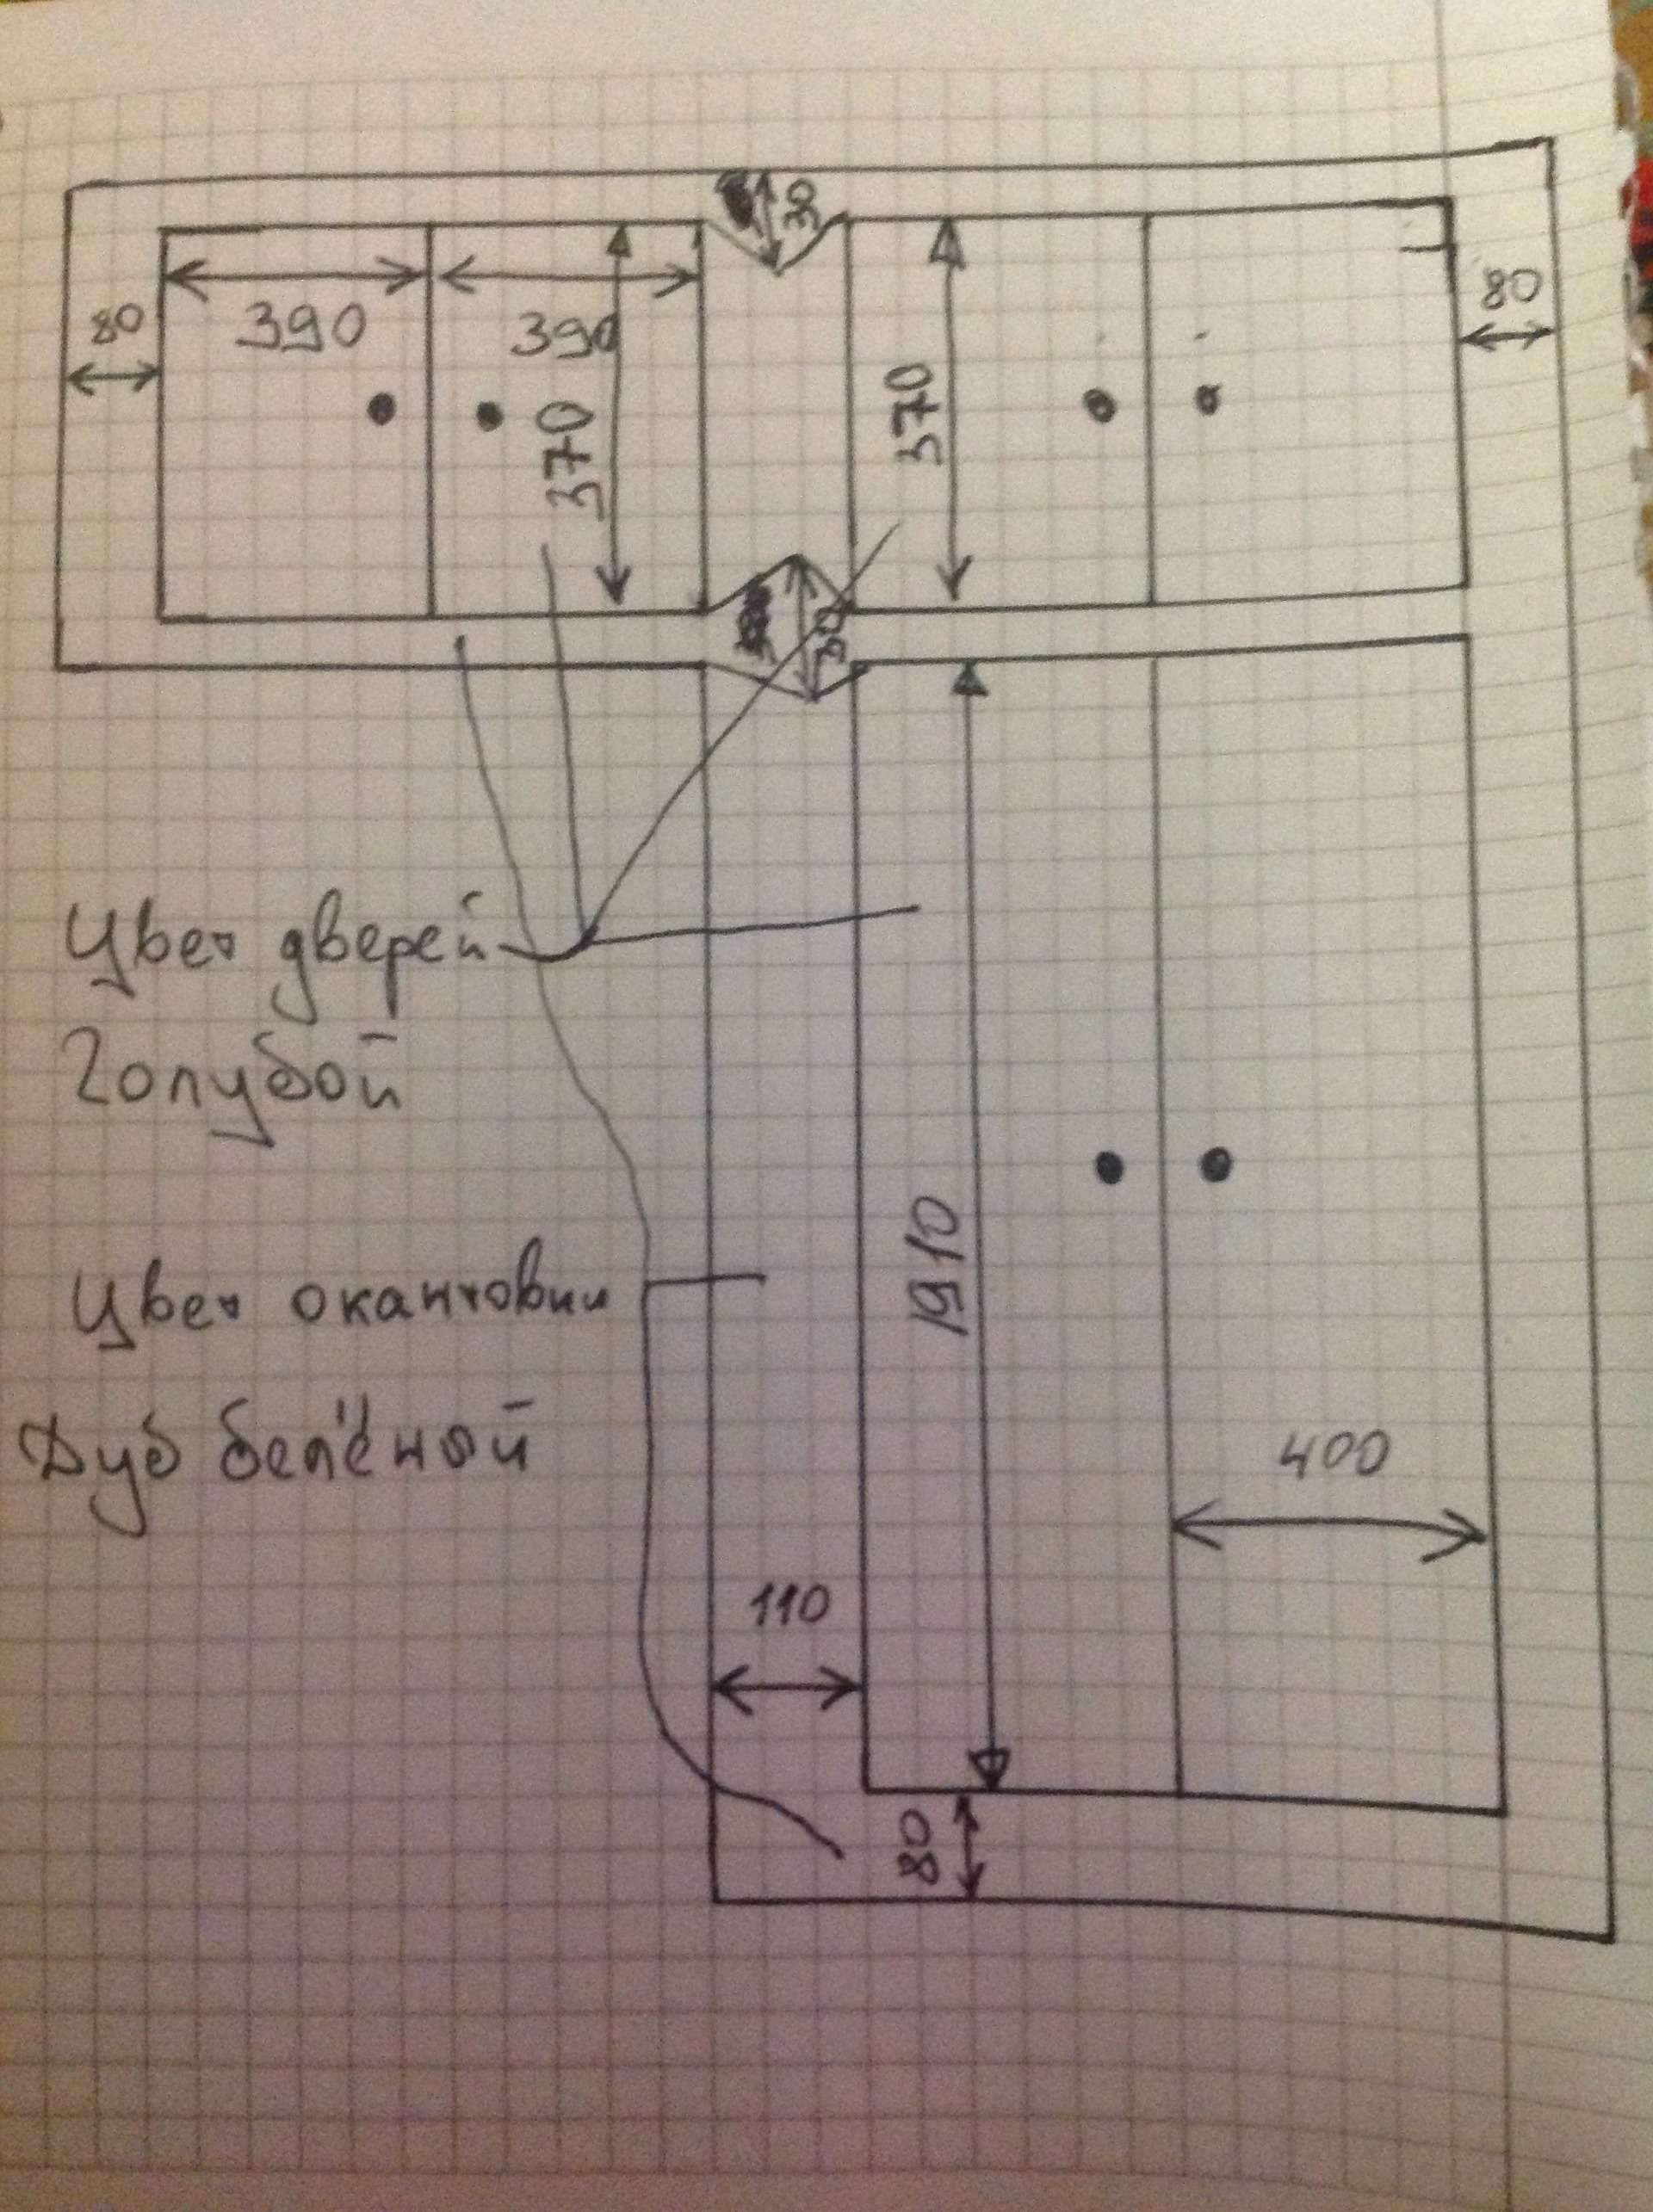 30
80
80
390
390
370
370
30
Цвет дверей
Голубой
1910
Цвет окантовки
Дуб белёный
400
110
80